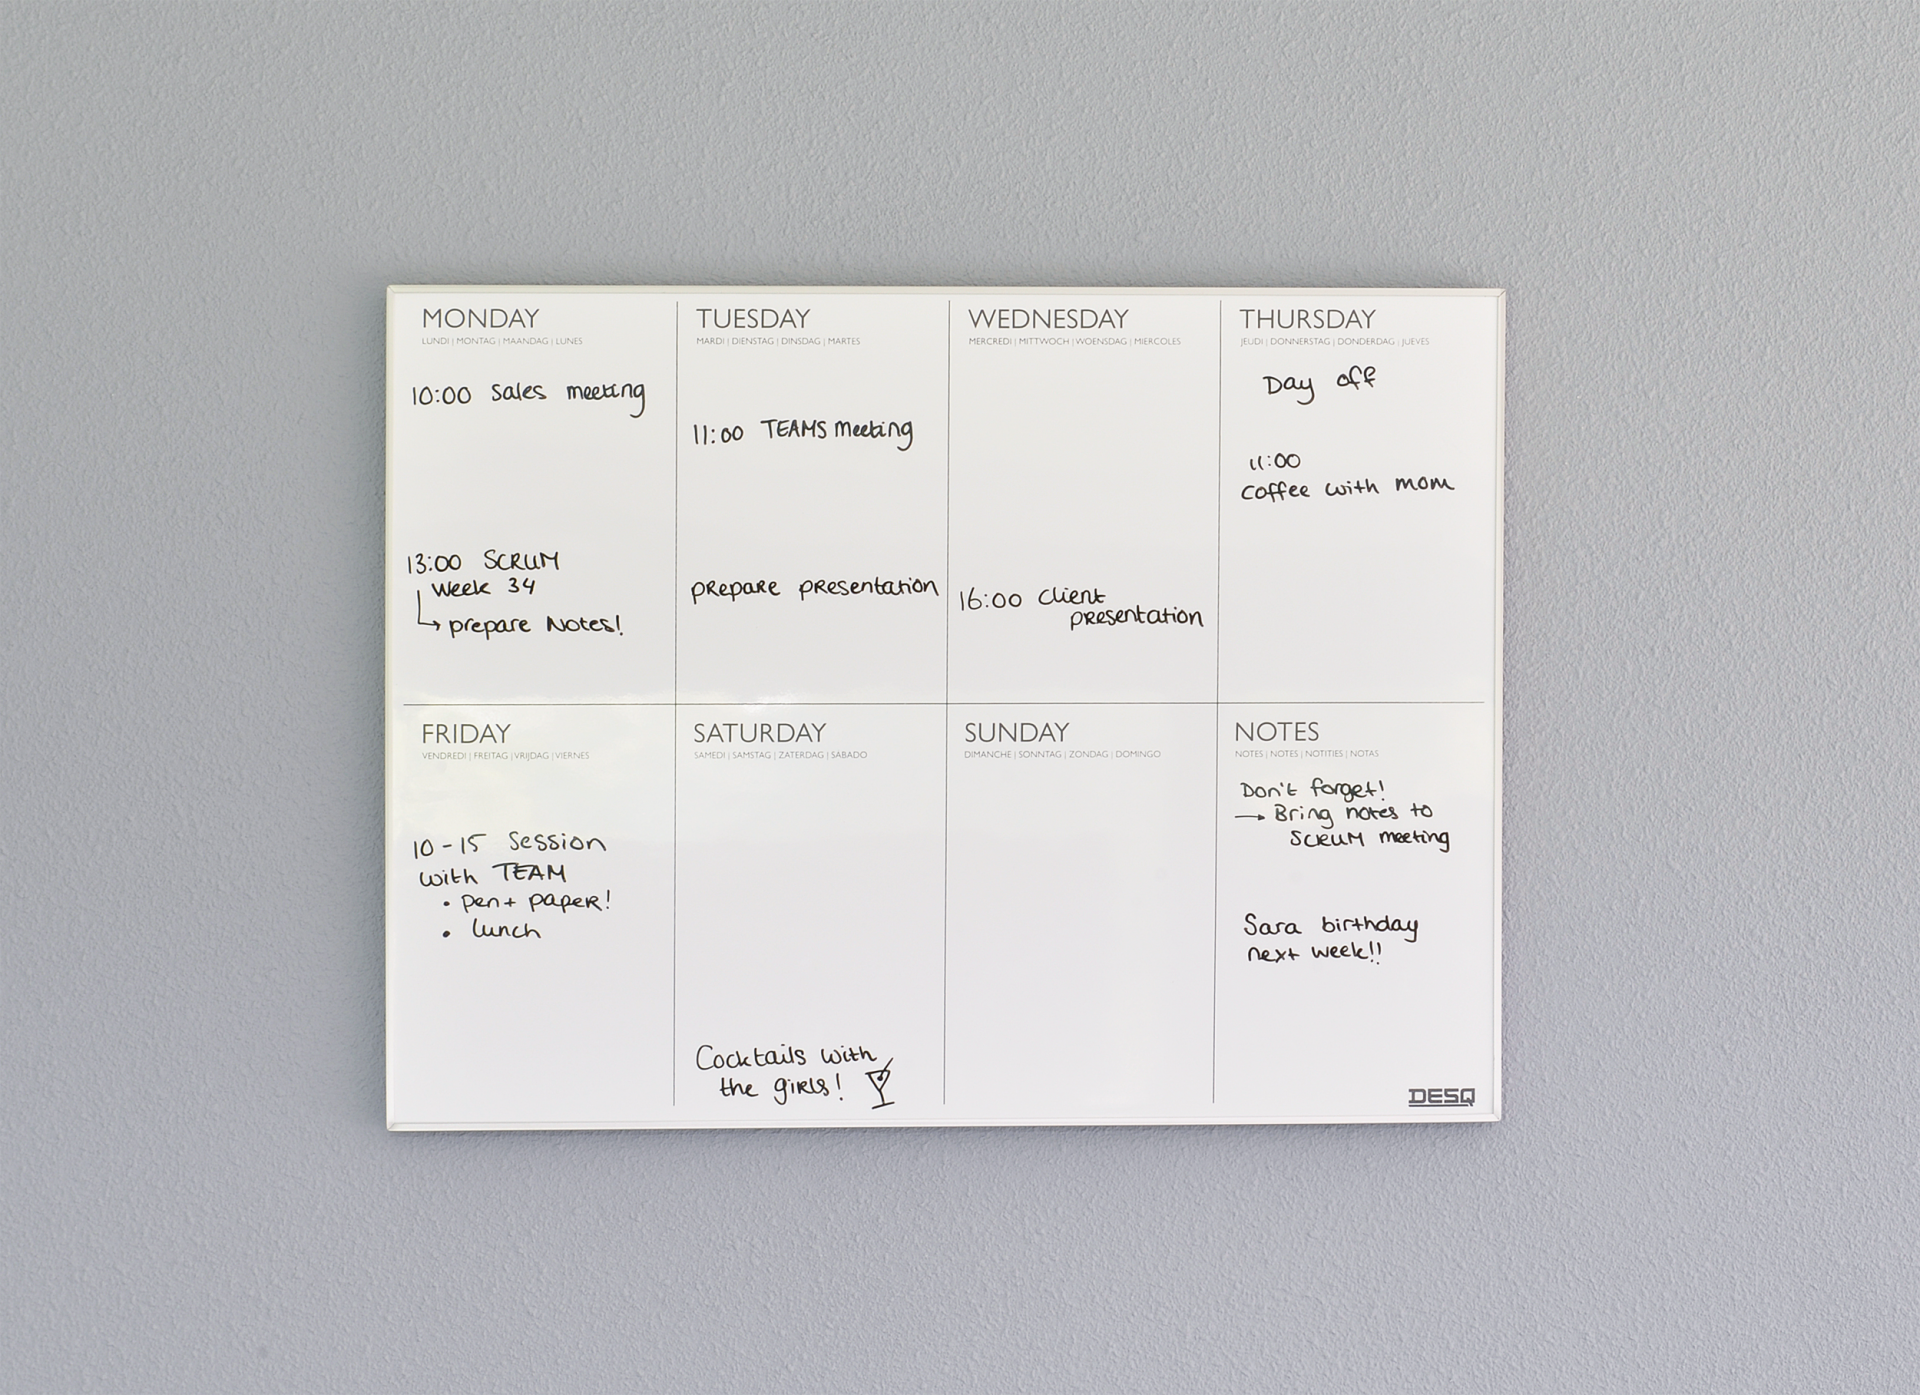 MONDAY
LUNDI | MONTAG | MAANDAG | LUNES
10:00 Sales meeting
13:00 SCRUM
Week 34
prepare Notes!
TUESDAY
MARDI | DIENSTAG | DINSDAG | MARTES
11:00 TEAMS meeting
prepare presentation
WEDNESDAY
MERCREDI | MITTWOCH | WOENSDAG | MIERCOLES
16:00 client
presentation
THURSDAY
JEUDI | DONNERSTAG | DONDERDAG | JUEVES
Day off
11:00
Coffee with mom
FRIDAY
VENDREDI | FREITAG | VRIJDAG | VIERNES
10-15 Session
with TEAM
• pen + paper!
• lunch
SATURDAY
SAMEDI | SAMSTAG | ZATERDAG | SÁBADO
Cocktails with
the girls!
SUNDAY
DIMANCHE | SONNTAG | ZONDAG | DOMINGO
NOTES
NOTES | NOTES | NOTITIES | NOTAS
Don't forget!
→ Bring notes to
SCRUM meeting
Sara birthday
next week!!
DESQ